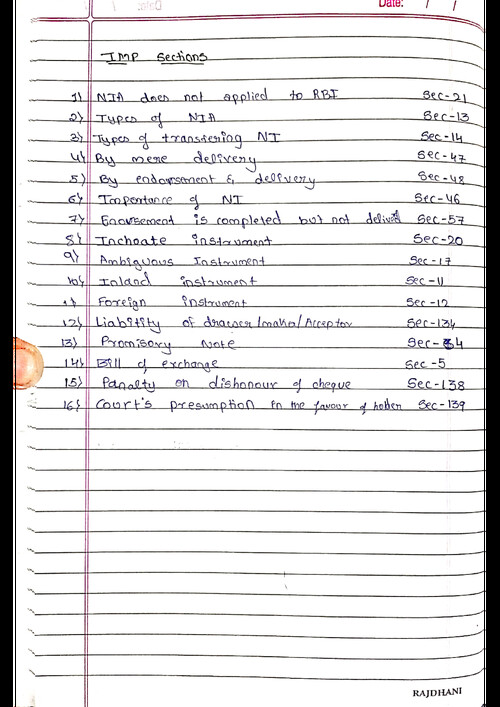 Date: / /
IMP Sections
1) NIA does not applied to RBI Sec-21
2) Types of NIA Sec-13
3) Types of transfering NI Sec-14
4) By mere delivery Sec-47
5) By endorsement & delivery Sec-48
6) Importance of NI Sec-46
7) Enorsement is completed but not deliverd Sec-57
8) Inchoate instrument Sec-20
9) Ambiguous Instrument Sec-17
10) Inland instrument Sec-11
11) Foreign instrument Sec-12
12) Liabitity of drawer/maker/Acceptor Sec-134
13) Promisory Note Sec-4
14) Bill of exchange Sec-5
15) Panalty on dishonour of cheque Sec-138
16) Court's presumption in the favour of holder Sec-139
RAJDHANI